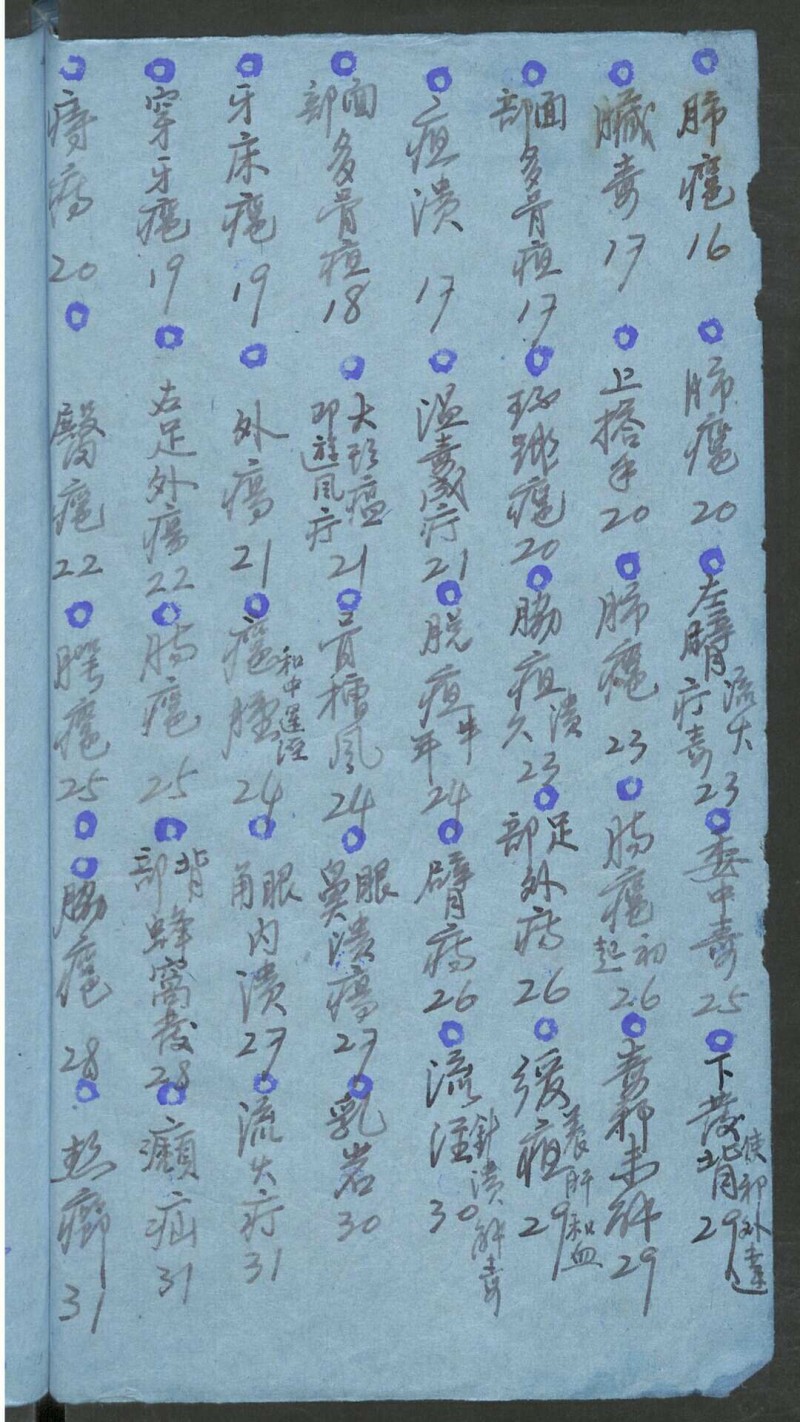 肺癰 16 肺癰 20 左臂疔毒 流火 23 委中毒 25 下發背 使邪外達 29
臟毒 17 上搭手 20 肺癰 23 腸癰 初起 26 毒邪未解 29
面部多骨疽 17 环跳癰 20 脇疽 久潰 23 足部外疡 26 緩疽 養肝和血 29
疽潰 17 温毒成疗 21 脱疽 24 臂疡 26 流注 針潰解毒 30
面部多骨疽 18 大頭瘟 即遊風疔 21 骨槽風 24 眼鼻潰瘍 27 乳岩 30
牙床癰 19 外瘍 21 癰腫 和中運溼 24 眼角内潰 27 流火疔 31
穿牙癰 19 右足外瘍 22 腸癰 25 背部蜂窩發 28 癩疝 31
痔疡 20 臀癰 22 腭癰 25 脇癰 28 熱癤 31